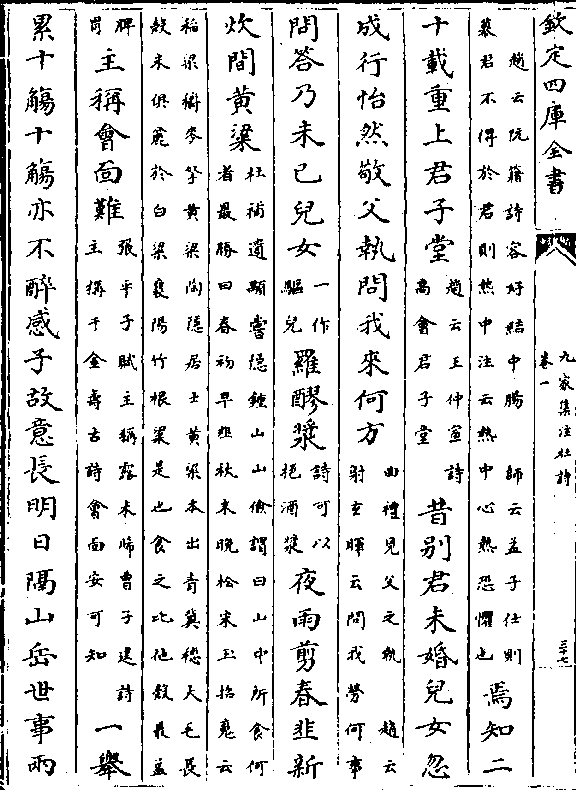 欽定四庫全書
九家集注杜詩
卷一
三十七
趙云阮籍詩容好結中腸　師云孟子仕則
慕君不得於君則熱中注云熱中心熱恐懼也
焉知二
十載重上君子堂
趙云王仲宣詩
高會君子堂
昔别君未婚兒女忽
成行怡然敬父執問我來何方
曲禮見父之執　趙云
射玄暉云問我勞何事
問答乃未已兒女
一作
驅兒
羅醪漿
詩可以
挹酒漿
夜雨剪春韭新
炊間黄粱
杜補遺顒嘗隱鍾山山儉謂曰山中所食何
者最勝曰春初早韭秋末晚菘宋玉招䰟云
稻粱穱麥挐黄粱陶隱居云黄粱本出青冀穗大毛長
殼米俱麄於白粱襄陽竹根粱是也食之比他穀最益
脾
胃
主稱會面難
張平子賦主稱露未晞曹子建詩
主稱千金壽古詩會面安可知
一舉
累十觴十觴亦不醉感子故意長明日隔山岳世事兩